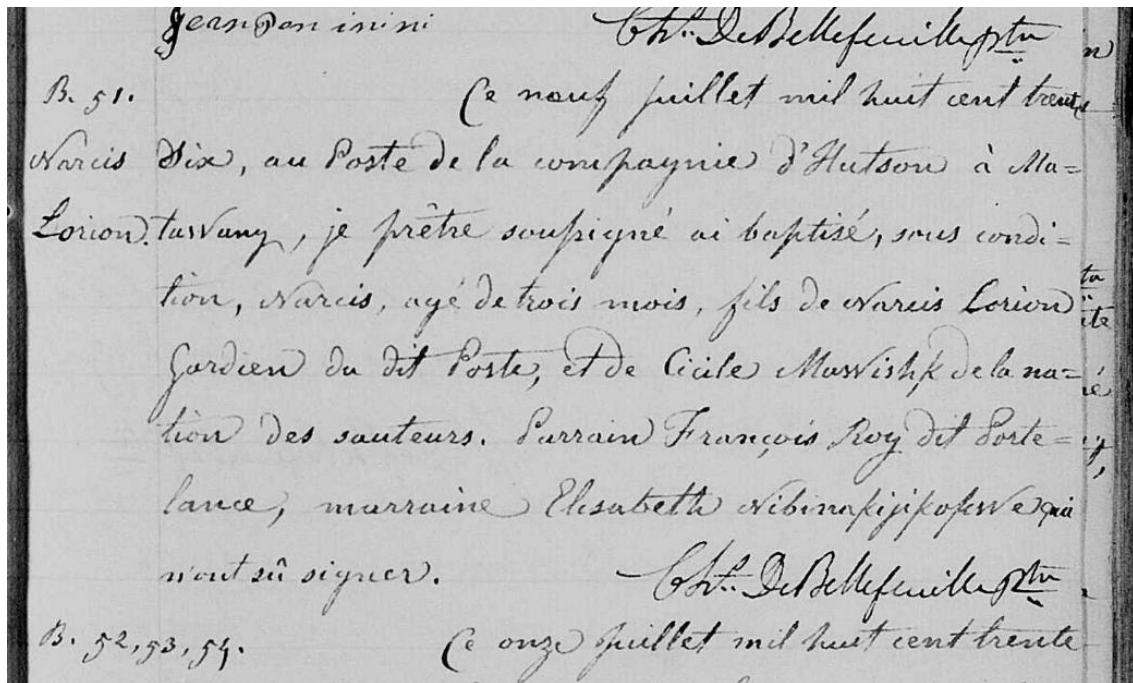 inini Chs. DeBellefeuille ptre
B. 51. Ce neuf juillet mil huit cent trente
Narcis Six, au Poste de la compagnie d'Hutson à Ma=
Lorion. tawang, je prêtre soussigné ai baptisé, sous condi=
tion, Narcis, agé de trois mois, fils de Narcis Lorion
Gardien du dit Poste, et de Cicile de la na=
tion des sauteurs. Parrain François Roy dit Porte=
lance, marraine Elisabeth qui
n'ont sû signer. Chs. DeBellefeuille ptre
B. 52, 53, 54. Ce onze juillet mil huit cent trente